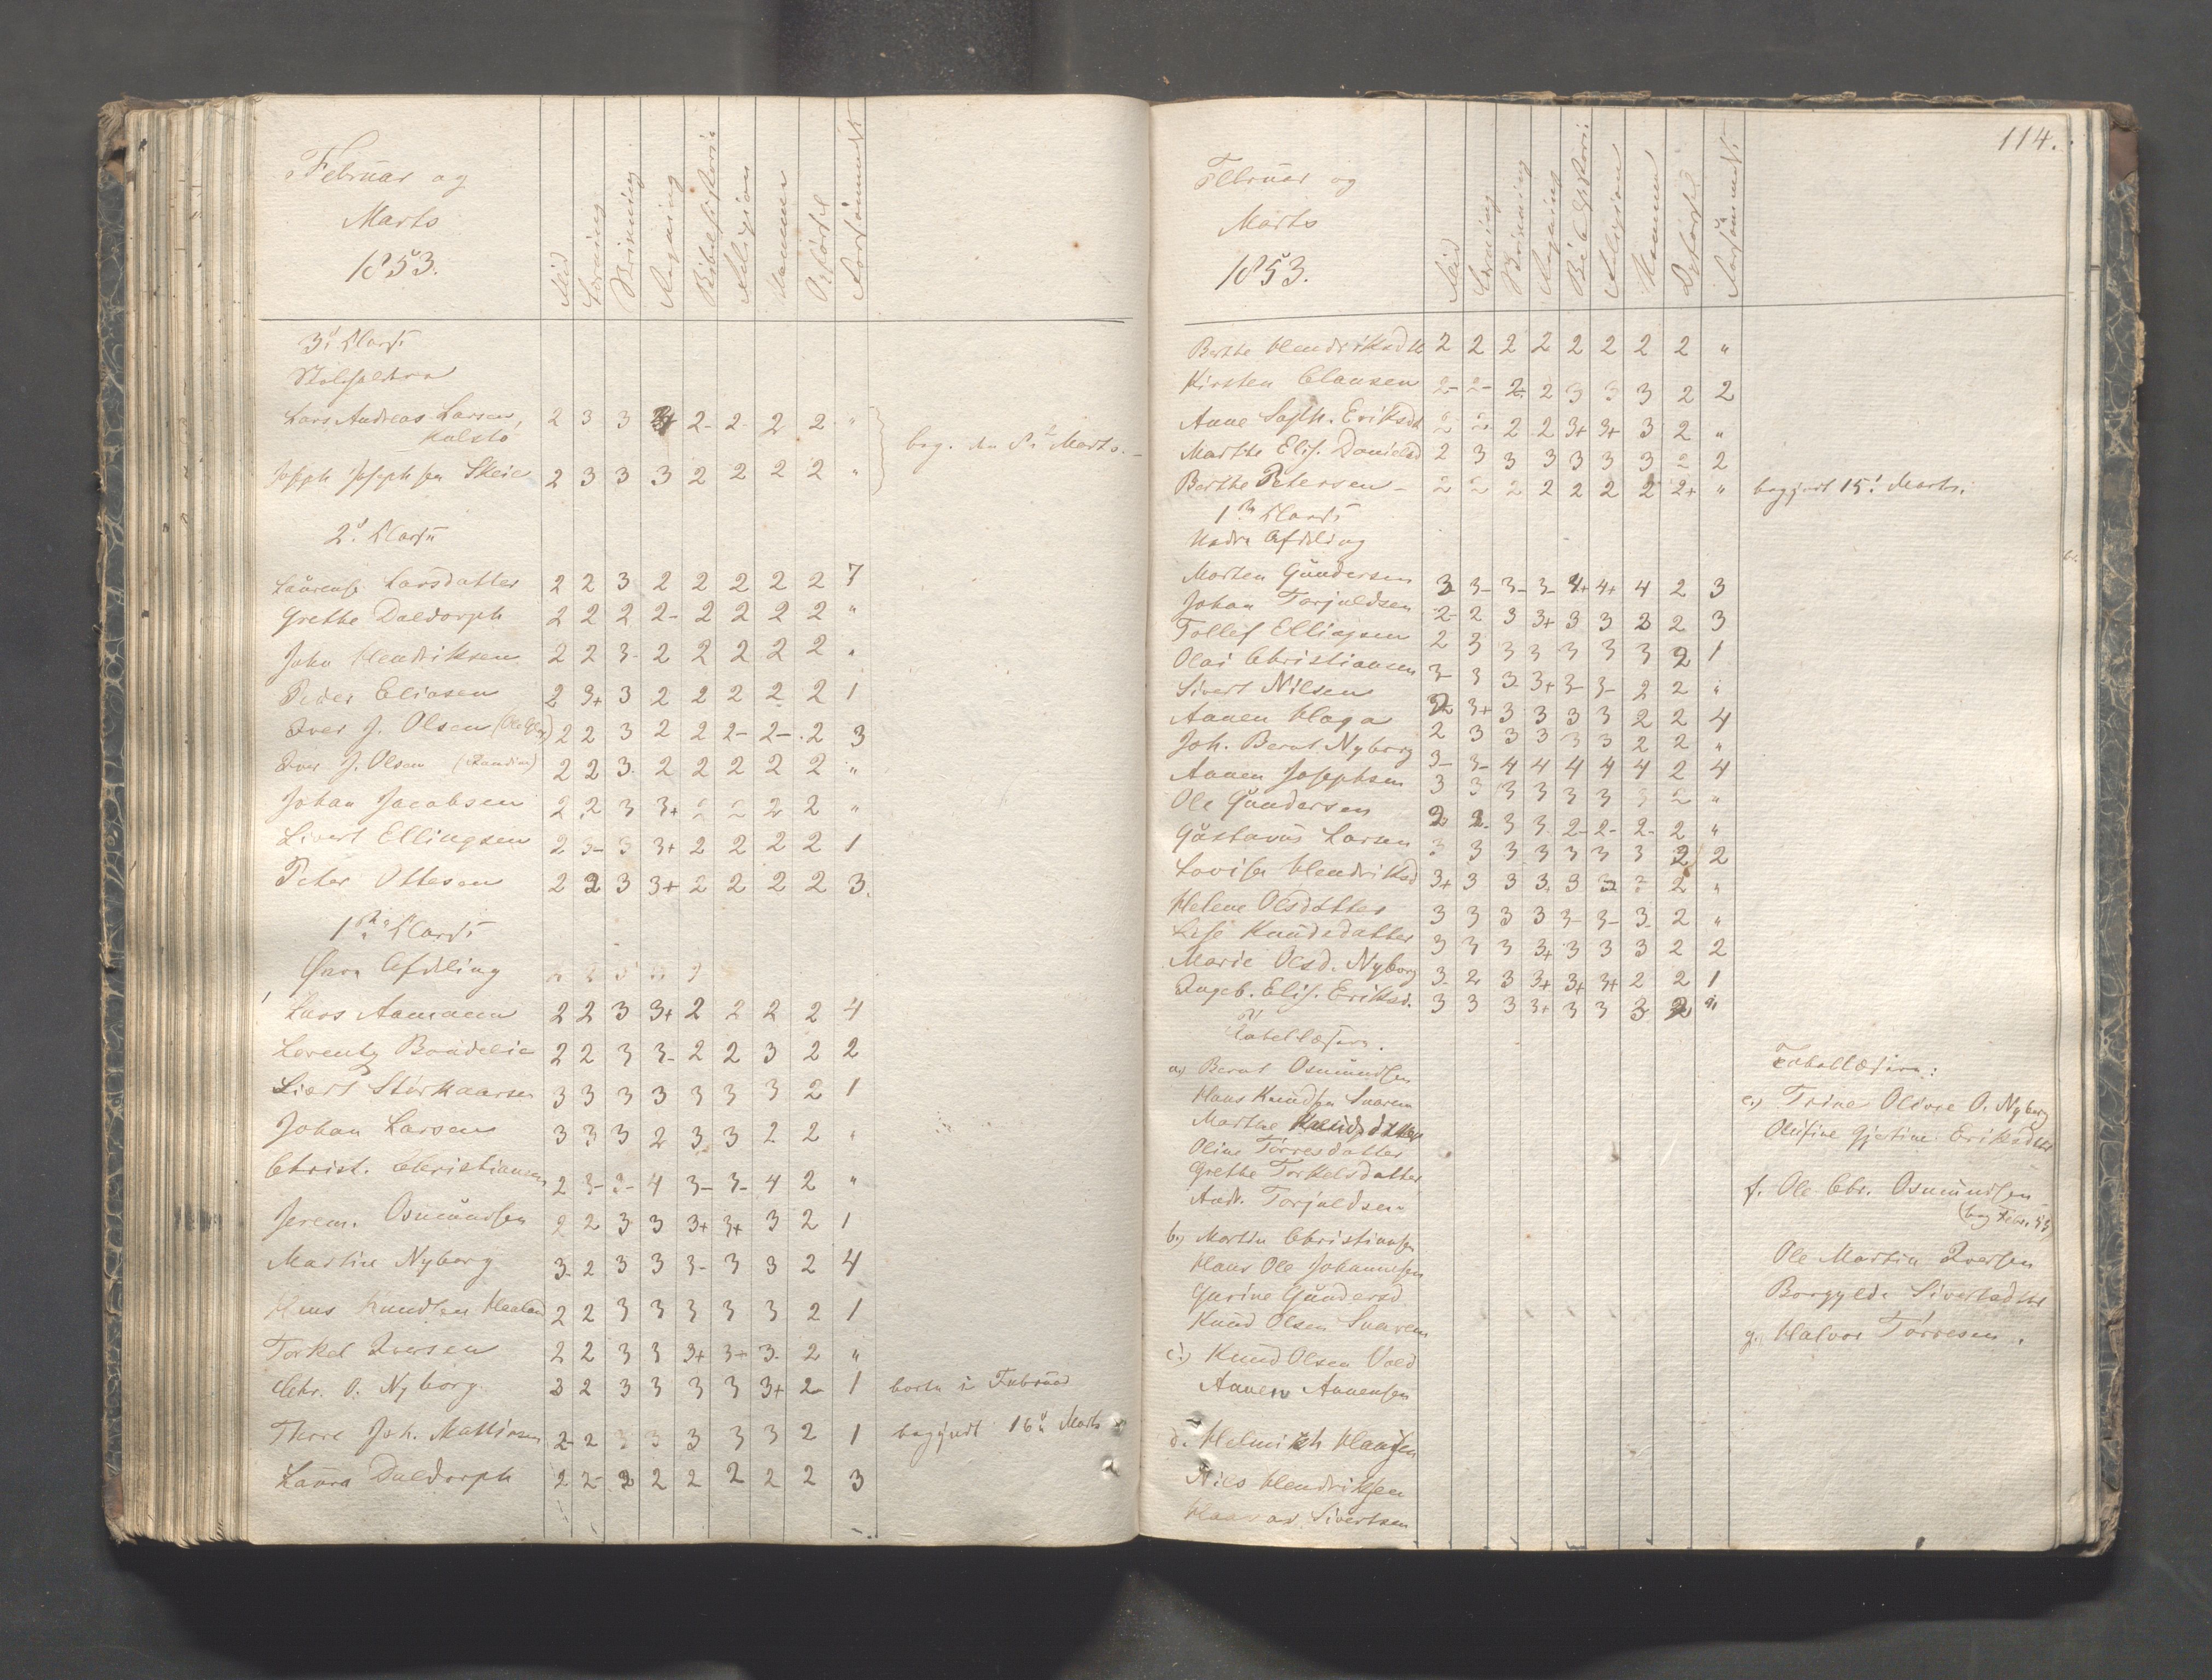 Februar og
Marts
1853.
Flid
Læsning
Skrivning
Regning
Bibelhistorie
Religion
Evnerne
Opførsel
Forsømmelse
3die Klasse
Lars Andreas Larsen, 2 3 3 2- 2- 2 2 "
Kalstø
beg. den Marts.
Joseph Josephsen Skeie 2 3 3 3 2 2 2 2 "
2den Klasse
Laurense Larsdatter 2 2 3 2 2 2 2 2 7
Grethe Daldorph 2 2 2 2- 2 2 2 2 "
John Hendriksen 2 2 3- 2 2 2 2 2 "
Peder Eliasen 2 3+ 3 2 2 2 2 2 1
Iver J. Olsen 2 2 3 2 2 2- 2- 2 3
Iver J. Olsen 2 2 3 2 2 2 2 2 "
Johan Jacobsen 2 2 3 3+ 2 2 2 2 "
Sivert Ellingsen 2 3- 3 3+ 2 2 2 2 1
Peter Ottesen 2 2 3 3+ 2 2 2 2 3.
1ste Klasse
Øvre Afdeling
Lars Aamann 2 2 3 3+ 2 2 2 2 4
Lorentz 2 2 3 3- 2 2 3 2 2
Sivert Størkaarsen 3 3 3 3 3 3 3 2 1
Johan Larsen 3 3 3 2 3 3 2 2 "
Christ. Christiansen 2 3- 3- 4 3- 3- 4 2 "
Jerem. Osmundsen 2 2 3 3 3+ 3+ 3 2 1
Martin Nyborg 3- 2 3 3 3- 3 3 2 4
Hans Knudsen Haaland 2 2 3 3 3 3 3 2 1
Torkel Iversen 2 2 3 3 3+ 3+ 3- 2 "
Chr. O. Nyborg 3 2 3 3 3 3 3+ 2 1 borte i Februar
Thore Joh. Mathiasen 2- 2 3 3 3 3 3 2 1 begyndt 16de Marts
Laura Daldorph 2 2- 2 2 2 2 2 2 3
114.
Februar og
Marts
1853.
Flid
Læsning
Skrivning
Regning
Bibelhistorie
Religion
Evnerne
Opførsel
Forsømmelse
Berthe Hendriksdtr 2 2 2 2 2 2 2 2 "
Kirsten Clausen 2- 2- 2- 2 3 3 3 2 2
Anne Soph. Eriksdt 2 2 2 2 3+ 3+ 3 2 "
Marthe Elis. Danielsd 2 3 3 3 3 3 3 2 2
Berthe Petersen 2 2 2 2 2 2 2 2+ " begyndt 15de Marts.
1ste Klasse
Nedre Afdeling
Morten Gundersen 3 3- 3- 3- 4+ 4+ 4 2 3
Johan Torjuldsen 2- 2 3 3+ 3 3 2 2 3
Tollef Ellingsen 2 3 3 3 3 3 3 2 1
Olai Christiansen 3- 3 3- 3+ 3- 3- 2 2 "
Sivert Nilsen 3+ 3 3 3 3 2 2 4
Aanen Haga 2 3 3 3 3 3 2 2 "
Joh. Bernt Nyborg 3- 3- 4 4 4 4 4 2 4
Aanen Josephsen 3 3 3 3 3 3 3 2 "
Ole Gundersen 2 2- 3 3 2- 2- 2- 2 "
Gustavus Larsen 3 3 3 3 3 3 3 2 2
Lovise Hendriksd 3+ 3 3 3 3 3 2 "
Helene Olsdatter 3 3 3 3 3- 3- 3- 2 "
Lise Knudsdatter 3 3 3 3+ 3 3 3 2 2
Marie Olsd. Nyborg 3 2 3 3+ 3+ 3+ 2 2 1
Ingeb. Elis. Eriksd. 3 3 3 3+ 3 3 3 2 "
Tabellæsere.
a.) Bernt Osmundsen
Hans Knudsen
Marthe Knudsdatter
Oline Tørresdatter
Grethe Torkelsdatter
Andr. Torjuldsen
b.) Martin Christiansen
Hans Ole Johannesen
Gurine Gundersd.
Knud Olsen
c.) Knud Olsen Vold
Aanen Aanensen
d. Helmich Hansen
Nils Hendriksen
Haavar Sivertsen
Tabellæsere:
e.) Trine Olivie O. Nyborg
Olefine Gjertine Eriksdtr
f. Ole Chr. Osmundsen
(beg Febr. 53)
Ole Martin Iversen
Borgylde Sivertsdtr
g. Halvor Tørresen.